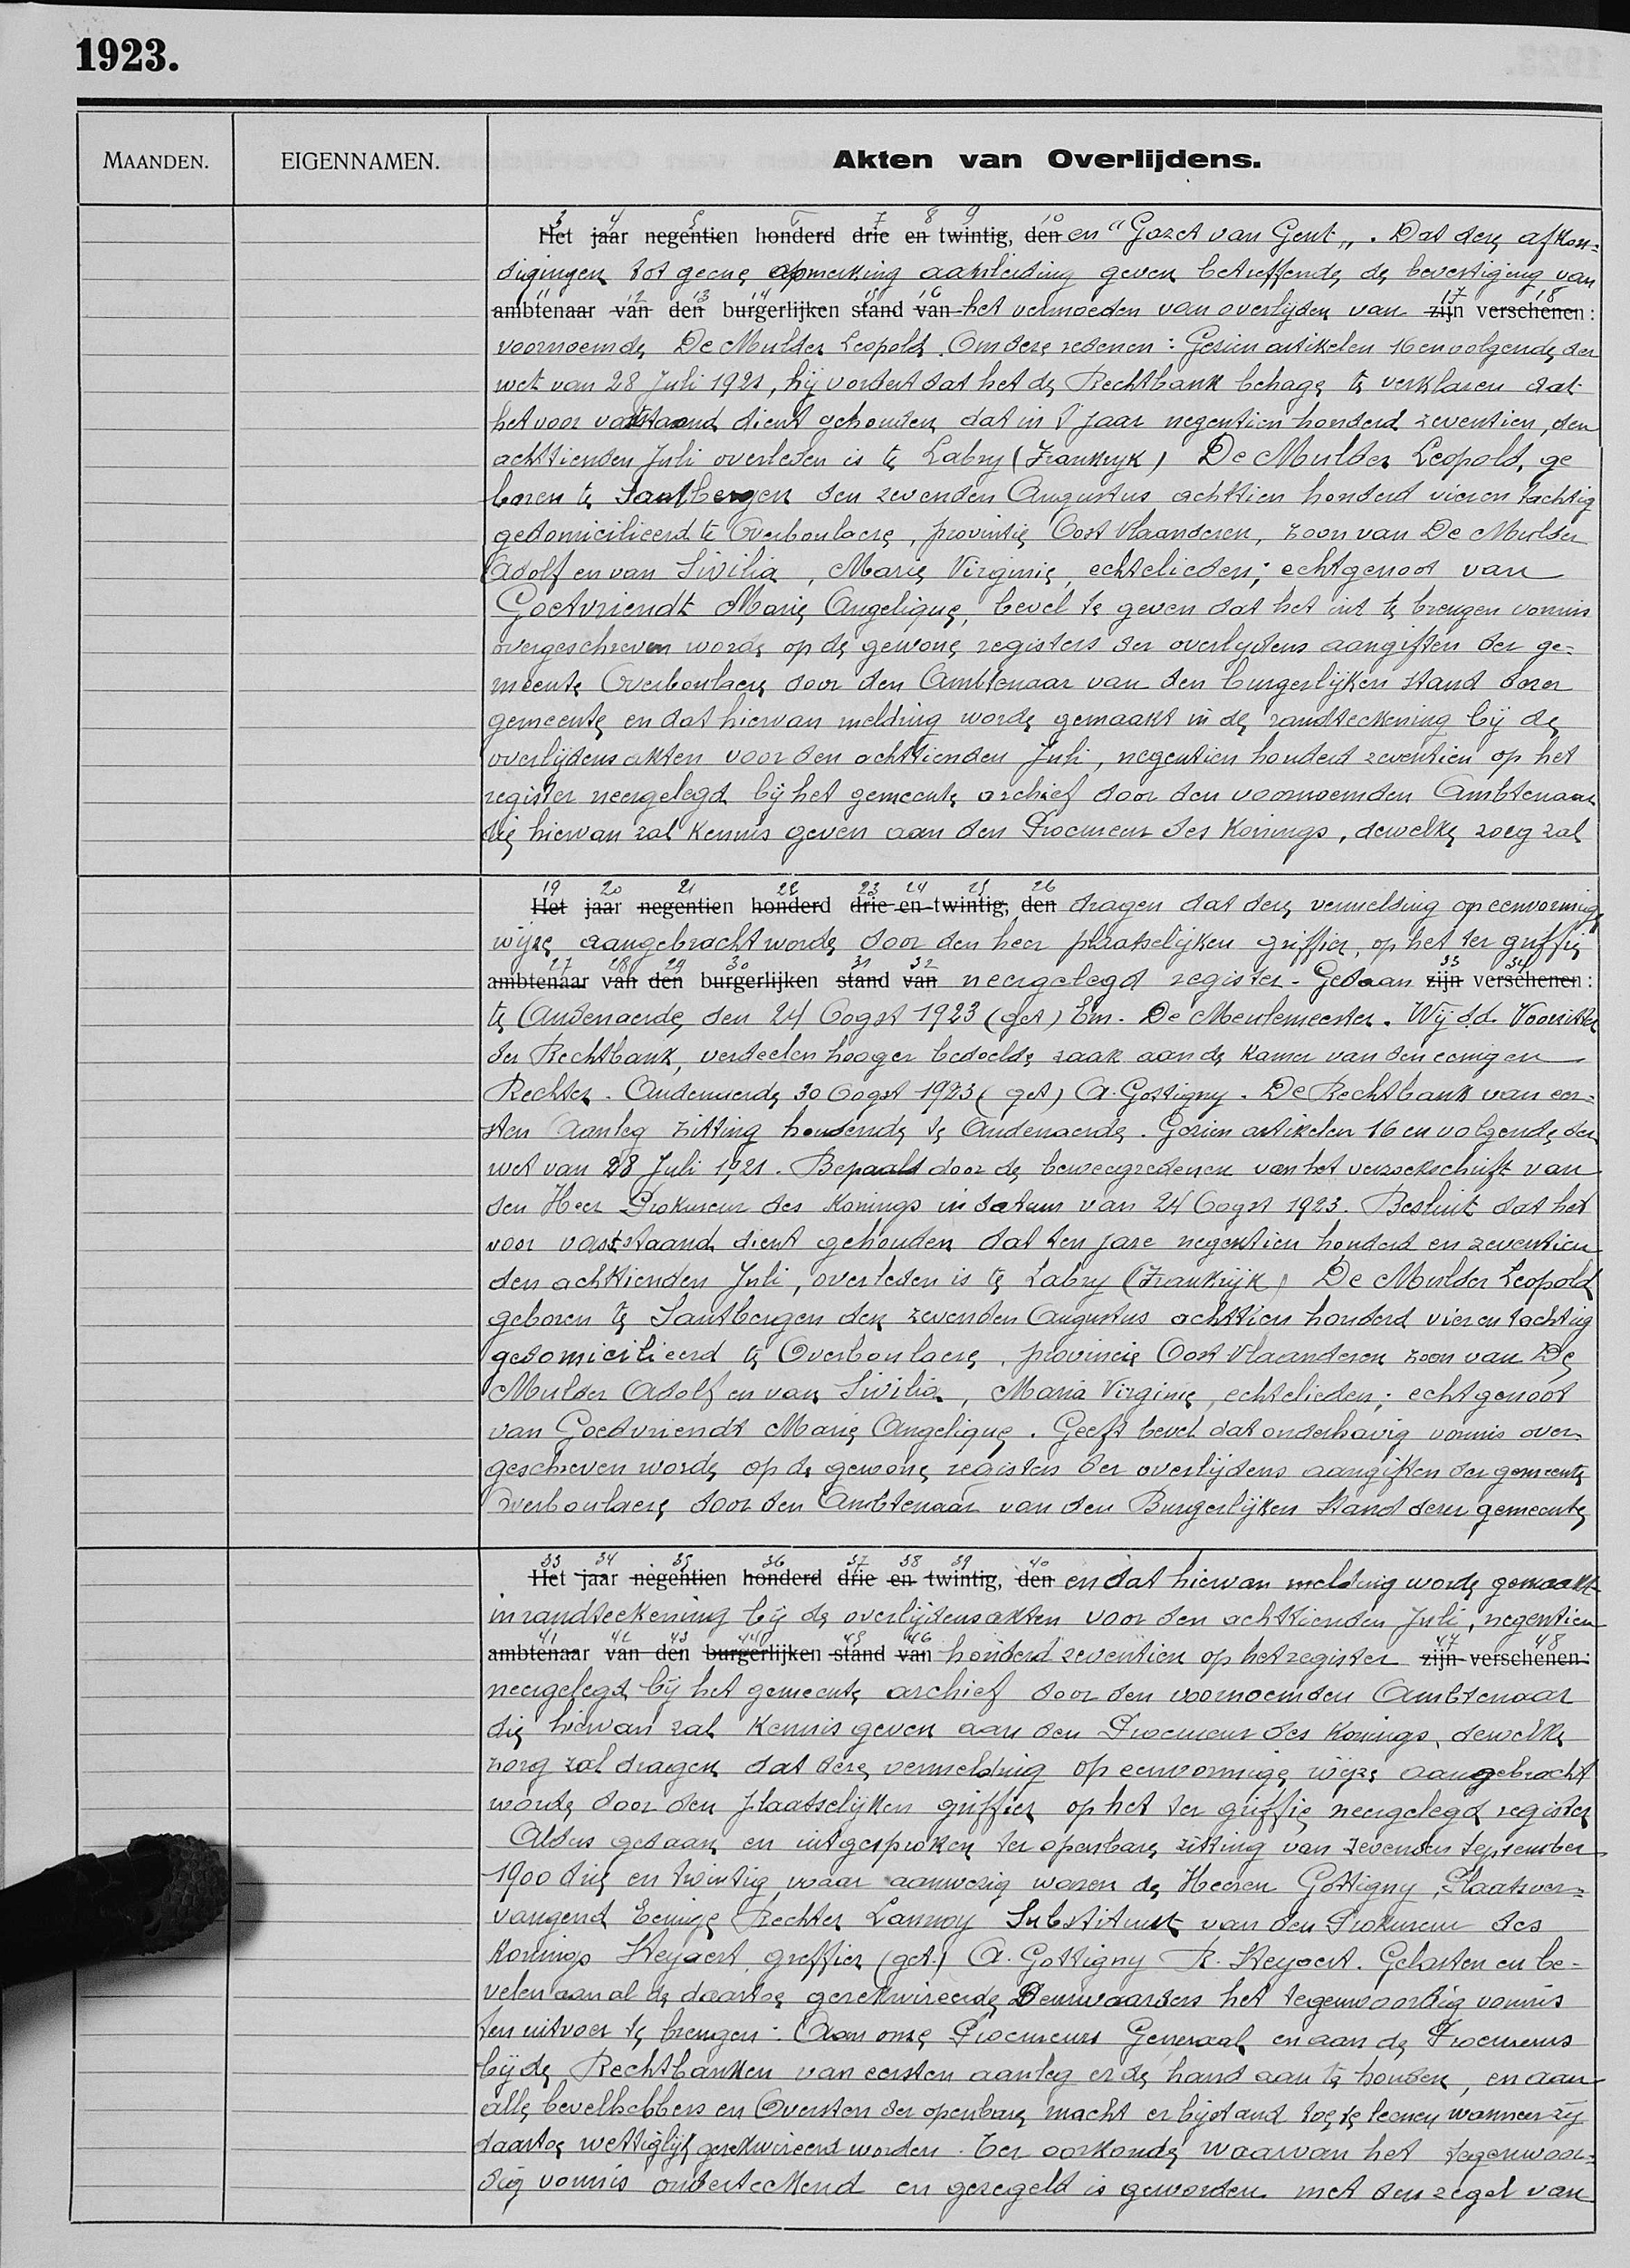 1923.
MAANDEN.
EIGENNAMEN.
Akten van Overlijdens.
3 4 5 6 7 8 9 10
Het jaar negentien honderd drie en twintig, den en "Gazet van Gent„. Dat deze afkon=
digingen tot geene opmerking aanleiding geven betreffende de bevestiging van
11 12 13 14 15 16 17 18
ambtenaar van den burgerlijken stand van het vermoeden van overlijden van zijn verschenen:
voornoemde De Mulder Leopold. Om deze redenen: Gezien artikelen 16 en volgende der
wet van 28 Juli 1921, hij vordert dat het de Rechtbank behage te verklaren dat
het voor vaststaand dient gehouden dat in 't jaar negentien honderd zeventien, den
achttienden Juli overleden is te Labry (Frankrijk) De Mulder Leopold, ge
boren te Santbergen den zevenden Augustus achttien honderd vier en tachtig
gedomicilieerd te Overboulaere, provintie Oost Vlaanderen, zoon van De Mulder
Adolf en van Sivilia, Marie Virginie, echtelieden; echtgenoot van
Goetvriendt Marie Angelique, bevel te geven dat het uit te brengen vonnis
overgeschreven worde op de gewone registers der overlijdens aangiften der ge=
meente Overboulaere door den Ambtenaar van den burgerlijken stand dezer
gemeente en dat hiervan melding worde gemaakt in de randteekening bij de
overlijdens akten voor den achttienden Juli, negentien honderd zeventien op het
register neergelegd bij het gemeente archief door den voornoemden Ambtenaar
die hiervan zal kennis geven aan den Procureur des Konings, dewelke zorg zal
19 20 21 22 23 24 25 26
Het jaar negentien honderd drie en twintig, den dragen dat deze vermelding op eenvormige
wijze aangebracht worde door den heer plaatselijken griffier, op het ter griffie
27 28 29 30 31 32 33 34
ambtenaar van den burgerlijken stand van neergelegd register. Gedaan zijn verschenen:
te Audenaerde den 24 Oogst 1923 (get) Em. De Meulemeester. Wij d.d. Voorzitter
der Rechtbank, verdeelen hooger bedoelde zaak aan de kamer van den eenigen
Rechter. Audenaerde 30 Oogst 1923 (get) A. Gottigny. De Rechtbank van eer=
sten Aanleg zitting houdende te Audenaerde. Gezien artikelen 16 en volgende der
wet van 28 Juli 1921. Bepaald door de beweegredenen van het verzoekschrift van
den Heer Prokureur des Konings in datum van 24 Oogst 1923. Besluit dat het
voor vaststaand dient gehouden dat ten jare negentien honderd en zeventien
den achttienden Juli, overleden is te Labry (Frankrijk) De Mulder Leopold
geboren te Santbergen den zevenden Augustus achttien honderd vier en tachtig
gedomicilieerd te Overboulaere, provincie Oost Vlaanderen zoon van De
Mulder Adolf en van Sivilia, Maria Virginie, echtelieden; echtgenoot
van Goedvriendt Marie Angelique. Geeft bevel dat onderhavig vonnis over
geschreven worde op de gewone registers der overlijdens aangiften der gemeente
Overboulaere door den Ambtenaar van den Burgerlijken Stand dezer gemeente
33 34 35 36 37 38 39 40
Het jaar negentien honderd drie en twintig, den en dat hiervan melding worde gemaakt
in randteekening bij de overlijdensakten voor den achttienden Juli, negentien
41 42 43 44 45 46 47 48
ambtenaar van den burgerlijken stand van honderd zeventien op het register zijn verschenen:
neergelegd bij het gemeente archief door den voornoemden Ambtenaar
die hiervan zal kennis geven aan den Procureur des Konings, dewelke
zorg zal dragen dat deze vermelding op eenvormige wijze aangebracht
worde door den plaatselijken griffier op het ter griffie neergelegd register
Aldus gedaan en uitgesproken ter openbare zitting van zevenden September
1900 drie en twintig, waar aanwezig waren de Heeren Gottigny, Plaatsver=
vangend Eenige Rechter Lannoy Substituut van den Prokureur des
Konings Heyaert, griffier (get.) A. Gottigny R. Heyaert. Gelasten en be-
velen aan al de daartoe gerekwireerde Deurwaarders het tegenwoordig vonnis
ten uitvoer te brengen. Aan onze Procureurs Generaal en aan de Procureurs
bij de Rechtbanken van eersten aanleg er de hand aan te houden, en aan
alle bevelhebbers en Oversten der openbare macht er bijstand toe te leenen wanneer zij
daartoe wettiglijk gerekwireerd worden. Ter oorkonde waarvan het tegenwoor=
dig vonnis onderteekend en gezegeld is geworden met den zegel van